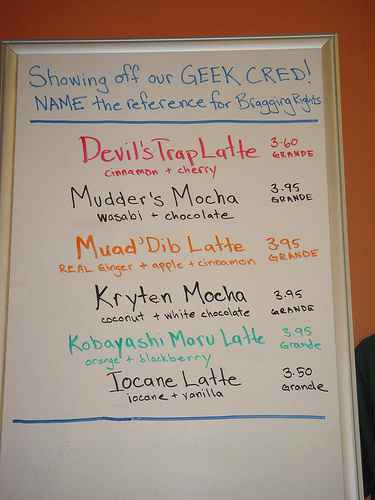 Showing off our GEEK CRED!
NAME the reference for Bragging Rights
Devil's Trap Latte 3.60
cinnamon + cherry GRANDE
Mudder's Mocha 3.95
wasabi + chocolate GRANDE
Muad'Dib Latte 3.95
REAL Ginger + apple + cinnamon GRANDE
Kryten Mocha 3.95
coconut + white chocolate GRANDE
Kobayashi Maru Latte 3.95
orange + blackberry Grande
Iocane Latte 3.50
iocane + vanilla Grande